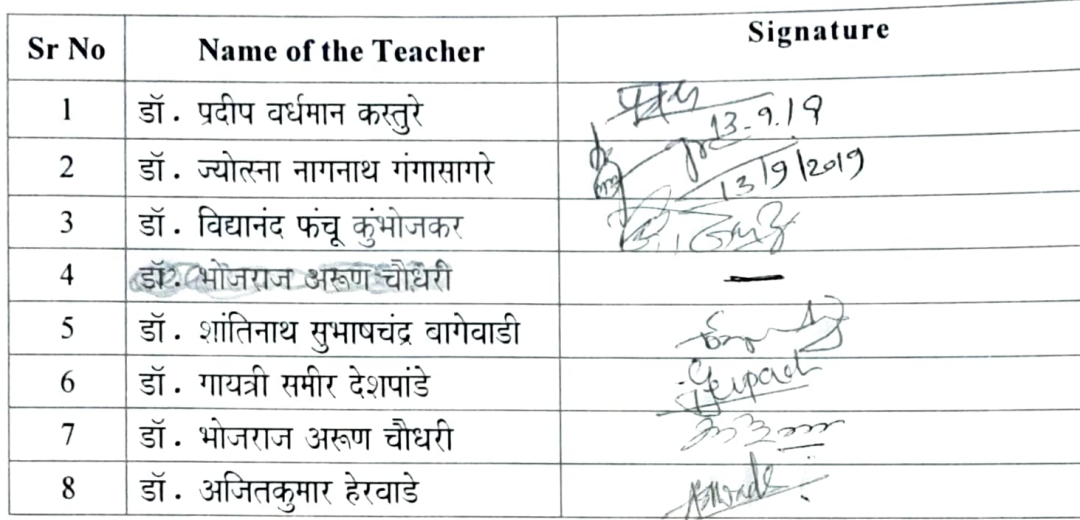 Sr No Name of the Teacher Signature
1 डॉ. प्रदीप वर्धमान कस्तुरे
13-9.19
2 डॉ. ज्योत्स्ना नागनाथ गंगासागरे
13/9/2019
3 डॉ. विद्यानंद फंचू कुंभोजकर
4 डॉ. भोजराज अरूण चौधरी —
5 डॉ. शांतिनाथ सुभाषचंद्र वागेवाडी
6 डॉ. गायत्री समीर देशपांडे
7 डॉ. भोजराज अरूण चौधरी
8 डॉ. अजितकुमार हेरवाडे